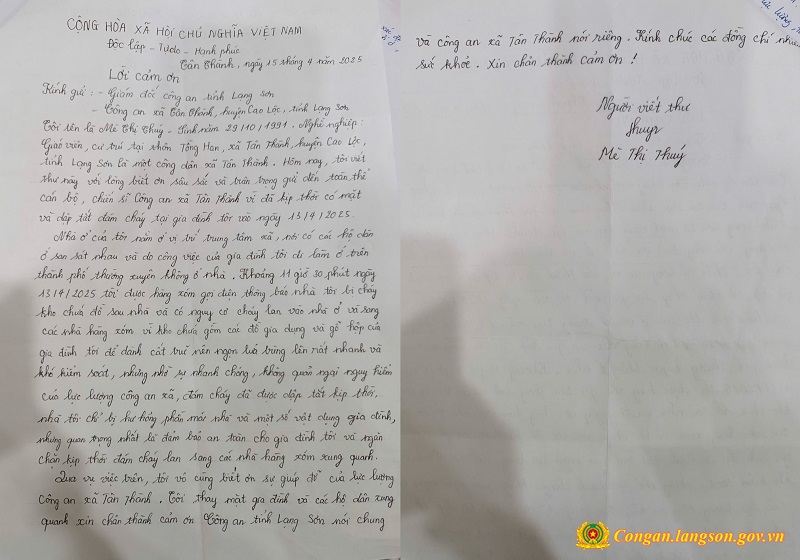 CỘNG HÒA XÃ HỘI CHỦ NGHĨA VIỆT NAM
Độc lập - Tự do - Hạnh phúc
Tân Thành, ngày 15 tháng 4 năm 2025
Lời cảm ơn
Kính gửi: - Giám đốc công an tỉnh Lạng Sơn
- Công an xã Tân Thành, huyện Cao Lộc, tỉnh Lạng Sơn
Tôi tên là Mè Thị Thuý - Sinh năm 29/10/1991. Nghề nghiệp:
Giáo viên, cư trú tại thôn Tồng Han, xã Tân Thành, huyện Cao Lộc,
tỉnh Lạng Sơn là một công dân xã Tân Thành. Hôm nay, tôi viết
thư này với lòng biết ơn sâu sắc và trân trọng gửi đến toàn thể
cán bộ, chiến sĩ Công an xã Tân Thành vì đã kịp thời có mặt
và dập tắt đám cháy tại gia đình tôi vào ngày 13/4/2025.
Nhà ở của tôi nằm ở vị trí trung tâm xã, nơi có các hộ dân
ở san sát nhau và do công việc của gia đình tôi đi làm ở trên
thành phố thường xuyên không ở nhà. Khoảng 11 giờ 30 phút ngày
13/4/2025 tôi được hàng xóm gọi điện thông báo nhà tôi bị cháy
kho chứa đồ sau nhà và có nguy cơ cháy lan vào nhà ở và sang
các nhà hàng xóm vì kho chứa gồm các đồ gia dụng và gỗ hộp của
gia đình tôi để dành cất trữ nên ngọn lửa bùng lên rất nhanh và
khó kiểm soát, nhưng nhờ sự nhanh chóng, không quản ngại nguy hiểm
của lực lượng công an xã, đám cháy đã được dập tắt kịp thời,
nhà tôi chỉ bị hư hỏng phần mái nhà và một số vật dụng gia đình,
nhưng quan trọng nhất là đảm bảo an toàn cho gia đình tôi và ngăn
chặn kịp thời đám cháy lan sang các nhà hàng xóm xung quanh.
Qua vụ việc trên, tôi vô cùng biết ơn sự giúp đỡ của lực lượng
Công an xã Tân Thành. Tôi thay mặt gia đình và các hộ dân xung
quanh xin chân thành cảm ơn Công an tỉnh Lạng Sơn nói chung
và công an xã Tân Thành nói riêng. Kính chúc các đồng chí nhiều
sức khỏe. Xin chân thành cảm ơn!
Người viết thư
Thuý
Mè Thị Thuý
Congan.langson.gov.vn